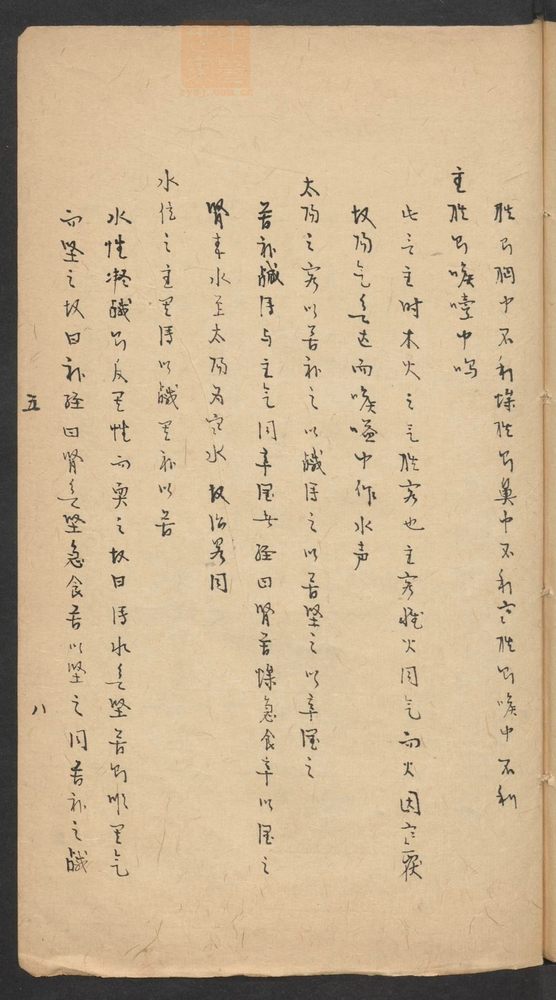 胜则胸中不利燥胜则鼻中不利寒胜则喉中不利
主胜则喉嗌中鸣
此言主时木火之气胜客也主客虽火同气而火因寒覆
故阳气欲达而喉嗌中作水声
太阳之客以苦补之以鹹泻之以苦坚之以辛润之
苦补鹹泻与主气同辛润者经曰肾苦燥急食辛以润之
肾本水至太阳为寒水故治略同
水位之主其泻以鹹其补以苦
水性凝鹹则反其性而耎之故曰泻水欲坚苦则顺其气
而坚之故曰补经曰肾欲坚急食苦以坚之用苦补之鹹
五
八